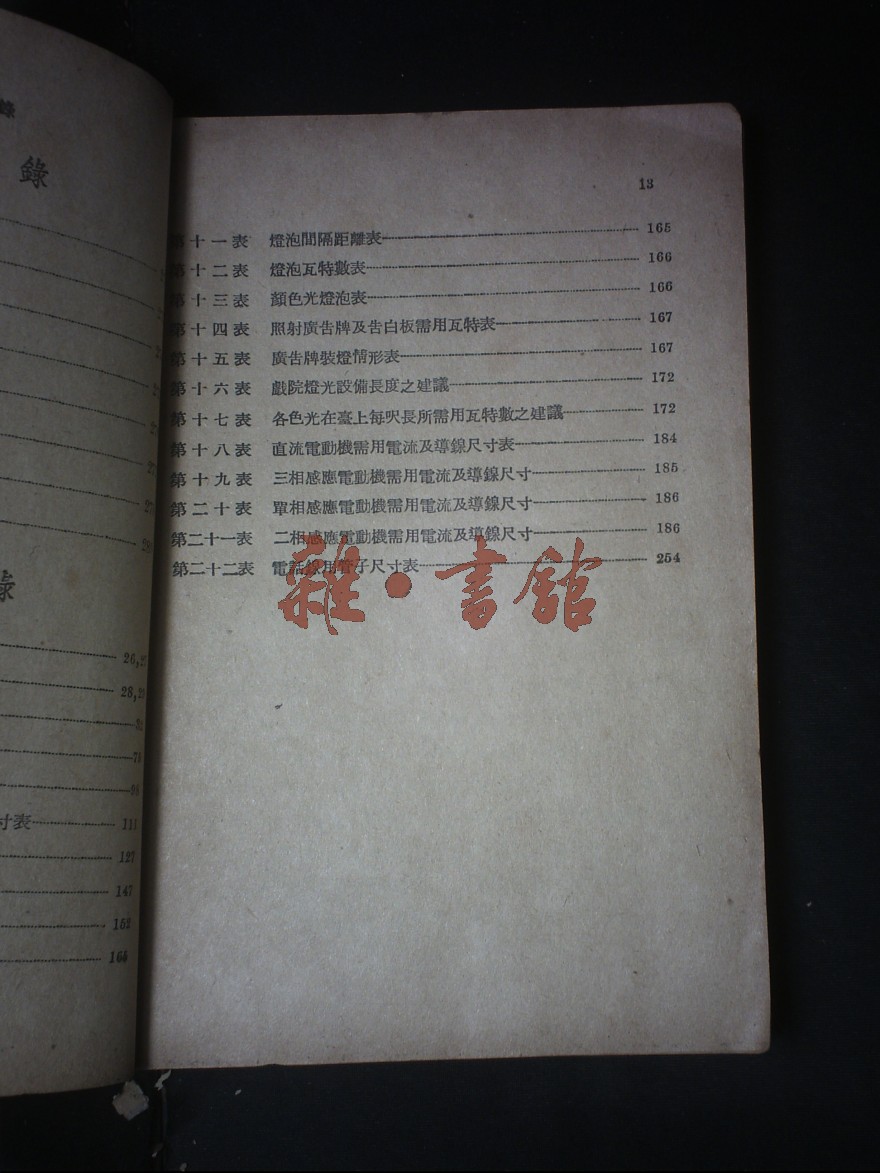 錄
錄
26,27
28,29
32
71
98
寸表 111
127
147
152
165
13
第十一表 燈泡間隔距離表 165
第十二表 燈泡瓦特數表 166
第十三表 顏色光燈泡表 166
第十四表 照射廣告牌及告白板需用瓦特表 167
第十五表 廣告牌裝燈情形表 167
第十六表 戲院燈光設備長度之建議 172
第十七表 各色光在臺上每呎長所需用瓦特數之建議 172
第十八表 直流電動機需用電流及導線尺寸表 184
第十九表 三相感應電動機需用電流及導線尺寸 185
第二十表 單相感應電動機需用電流及導線尺寸 186
第二十一表 二相感應電動機需用電流及導線尺寸 186
第二十二表 電話線用管子尺寸表 254
雜·書館